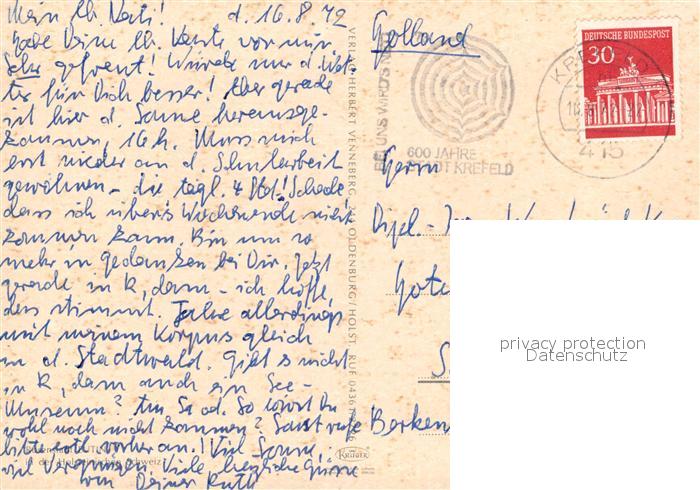 Mein lb. Kati! d. 16.8.72
habe Deine lb. Karte vor mir.
Sehr gefreut! Würde nur d. Wet-
ter für Dich besser! Aber gerade
ist hier d. Sonne herausge-
kommen, 16 h. Muss mich
erst wieder an d. Schularbeit
gewöhnen - die tägl. 4 Std.! Schade,
dass ich übers Wochenende nicht
kommen kann. Bin um so
mehr in Gedanken bei Dir. Jetzt
gerade in K, dann - ich hoffe,
dass stimmt. Fahre allerdings
mit meinem Korpus gleich
in d. Stadtwald. Gibt's nicht
in K, dann auch ein See-
Museum? Am Sa od. So wirst Du
wohl noch nicht kommen? Sonst rufe
bitte vorher an! Viel Sonne,
viel Vergnügen. Viele herzliche Grüsse
von Deiner Ruth
VERLAG HERBERT VENNEBERG OLDENBURG/HOLST RUF 04361
KRÜGER
Holland
BEI UNS
600 JAHRE
STADT KREFELD
DEUTSCHE BUNDESPOST
30
KREFELD
415
Herrn
Dipl.-
privacy protection
Datenschutz